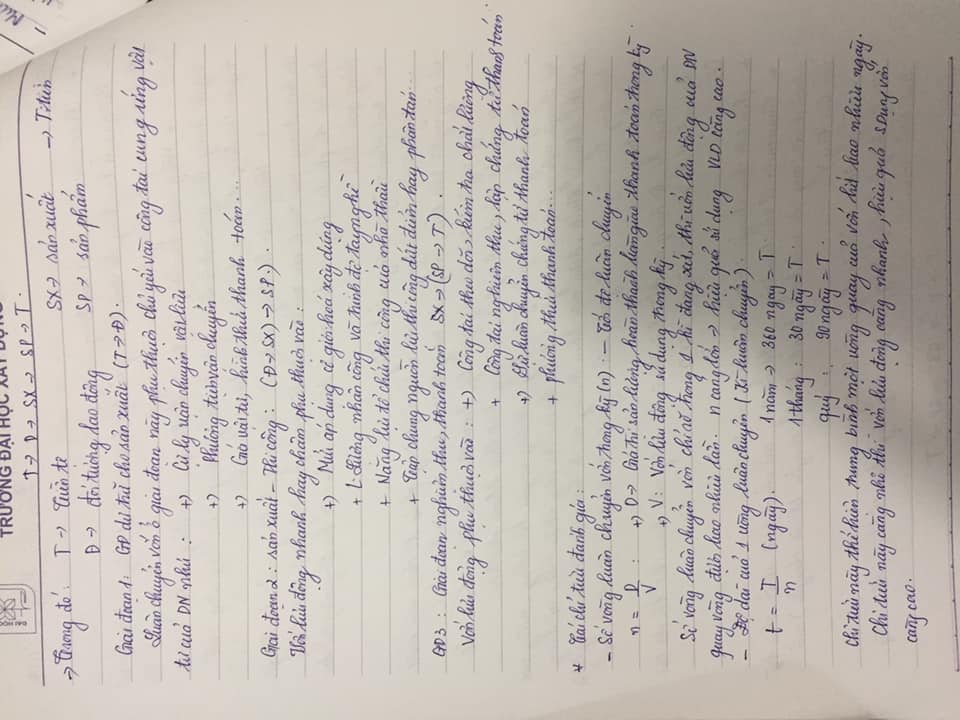 TRƯỜNG ĐẠI HỌC XÂY DỰNG
T → Đ → SX → SP → T
→ Trong đó: T → Tiền tệ SX → sản xuất → T: tiền
Đ → đối tượng lao động SP → sản phẩm
Giai đoạn 1: GĐ dự trữ cho sản xuất (T→Đ).
Luân chuyển vốn ở giai đoạn này phụ thuộc chủ yếu vào công tác cung ứng vật
tư của DN như: +) Cự ly vận chuyển vật liệu
+) Phương tiện vận chuyển
+) Giá vật tư, hình thức thanh toán...
Giai đoạn 2: sản xuất – Thi công: (Đ→SX)→SP)
Vốn lưu động nhanh hay chậm phụ thuộc vào:
+) Mức áp dụng cơ giới hoá xây dựng
+ Lượng nhân công và trình độ tay nghề
+ Năng lực tổ chức thi công của nhà thầu
+ Tập trung nguồn lực thi công dứt điểm hay phân tán..
GĐ3: Giai đoạn nghiệm thu, thanh toán SX→(SP→T)
Vốn lưu động phụ thuộc vào: +) Công tác theo dõi, kiểm tra chất lượng
+ Công tác nghiệm thu, lập chứng từ thanh toán
+) Luân chuyển chứng từ thanh toán
+ phương thức thanh toán...
* Các chỉ tiêu đánh giá:
- Số vòng luân chuyển vốn trong kỳ (n): - Tốc độ luân chuyển
n = D/V : +) D → Giá trị sản lượng hoàn thành bàn giao thanh toán trong kỳ
+) V: Vốn lưu động sử dụng trong kỳ
Số vòng luân chuyển vốn chỉ ra trong 1 kì đang xét, thì vốn lưu động của DN
quay vòng được bao nhiêu lần. n càng lớn → hiệu quả sử dụng VLĐ tăng cao.
- Độ dài của 1 vòng luân chuyển (Kì luân chuyển).
t = T/n (ngày). 1 năm → 360 ngày = T
1 tháng: 30 ngày = T.
quý: 90 ngày = T.
Chỉ tiêu này thể hiện trung bình một vòng quay của vốn hết bao nhiêu ngày.
Chỉ tiêu này càng nhỏ thì vốn lưu động càng nhanh, hiệu quả sdụng vốn
càng cao.